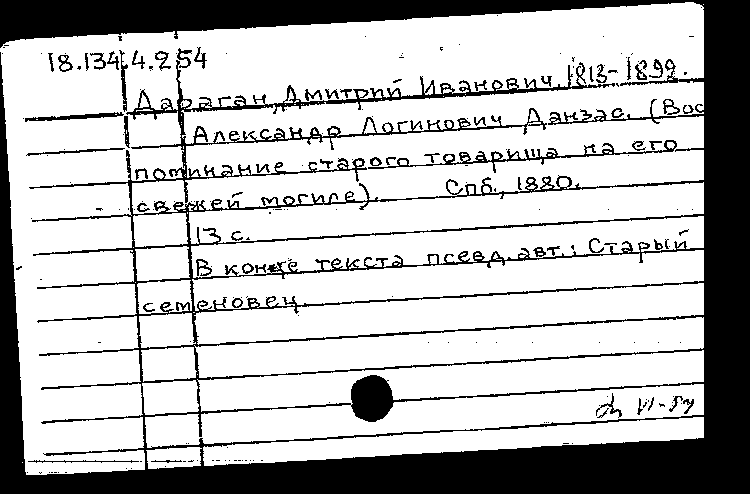 18.134.4.254
Дараган, Дмитрий Иванович, 1813-1892.
Александр Логинович Данзас. (Вос
поминание старого товарища на его
свежей могиле). Спб., 1880.
13 с.
В конце текста псевд. авт.: Старый
семеновец.